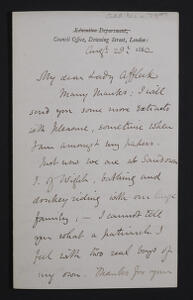 Education Department,
Council Office, Downing Street, London:
Augt. 29th
My dear Lady Affleck
Many thanks; I will
send you some more extracts
with pleasure, sometime when
I am amongst my papers.
Just now we are at Sandown
I. of Wight, bathing and
donkey riding with our large
family; – I cannot tell
you what a patriarch I
feel with two real boys of
my own. Thanks for your